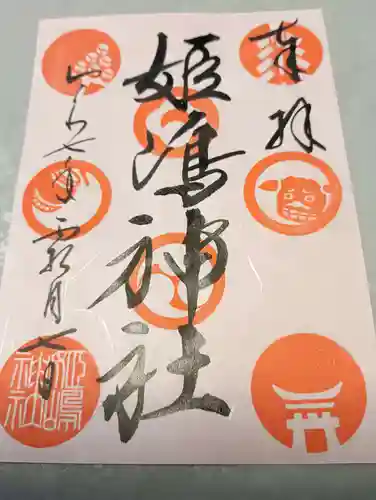 奉拝
姫嶋神社
令和七年霜月七日
姫嶋
神社